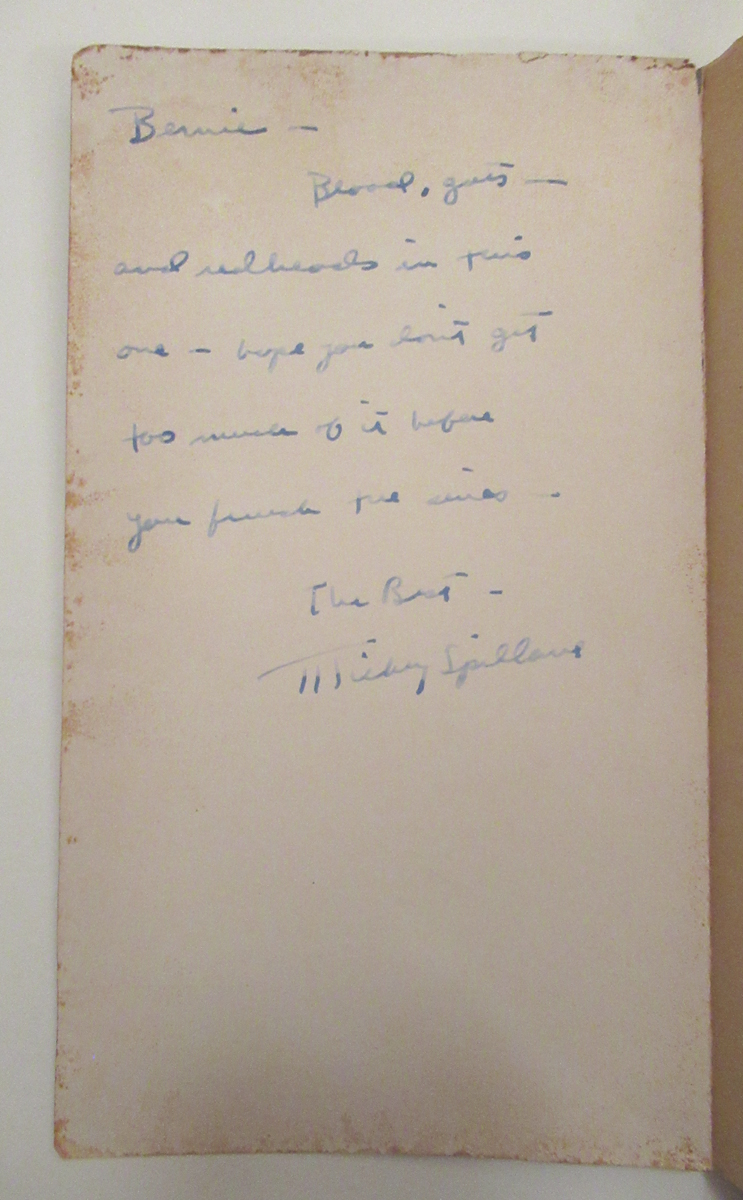 Bernie —
Blood, guts —
and redheads in this
one – hope you don't get
too much of it before
you finish the series –.
The Best –
Mickey Spillane